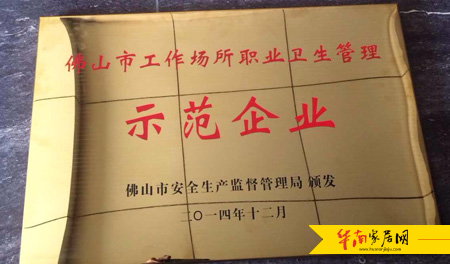 佛山市工作场所职业卫生管理
示范企业
佛山市安全生产监督管理局 颁发
二〇一四年十二月
华南家居网
www.huananjiaju.com